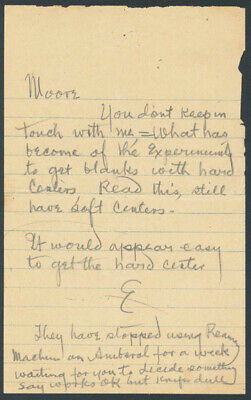 Moore
You dont keep in
touch with me = What has
become of the Experiments
to get blanks with hard
Centers Read this, still
have soft Centers.
It would appear easy
to get the hard center
E
They have stopped using
Machine on Amberol for a week
waiting for you to decide something
say works OK but Knife dull